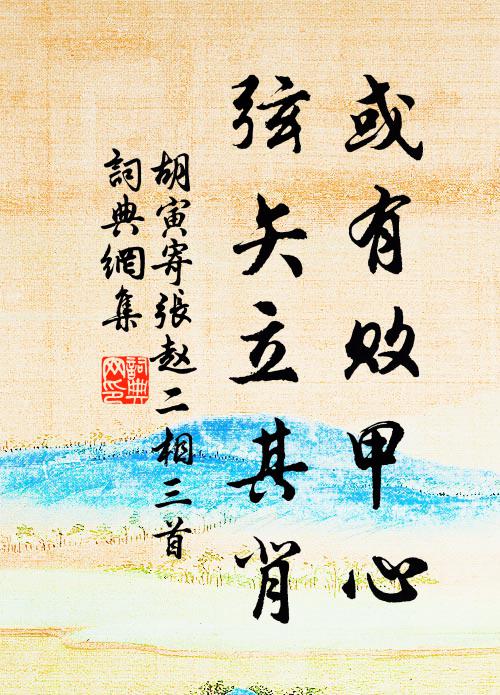 或有败甲心
弦矢立其背
胡寅寄張赵二相三首
詞典網集
詞典網印